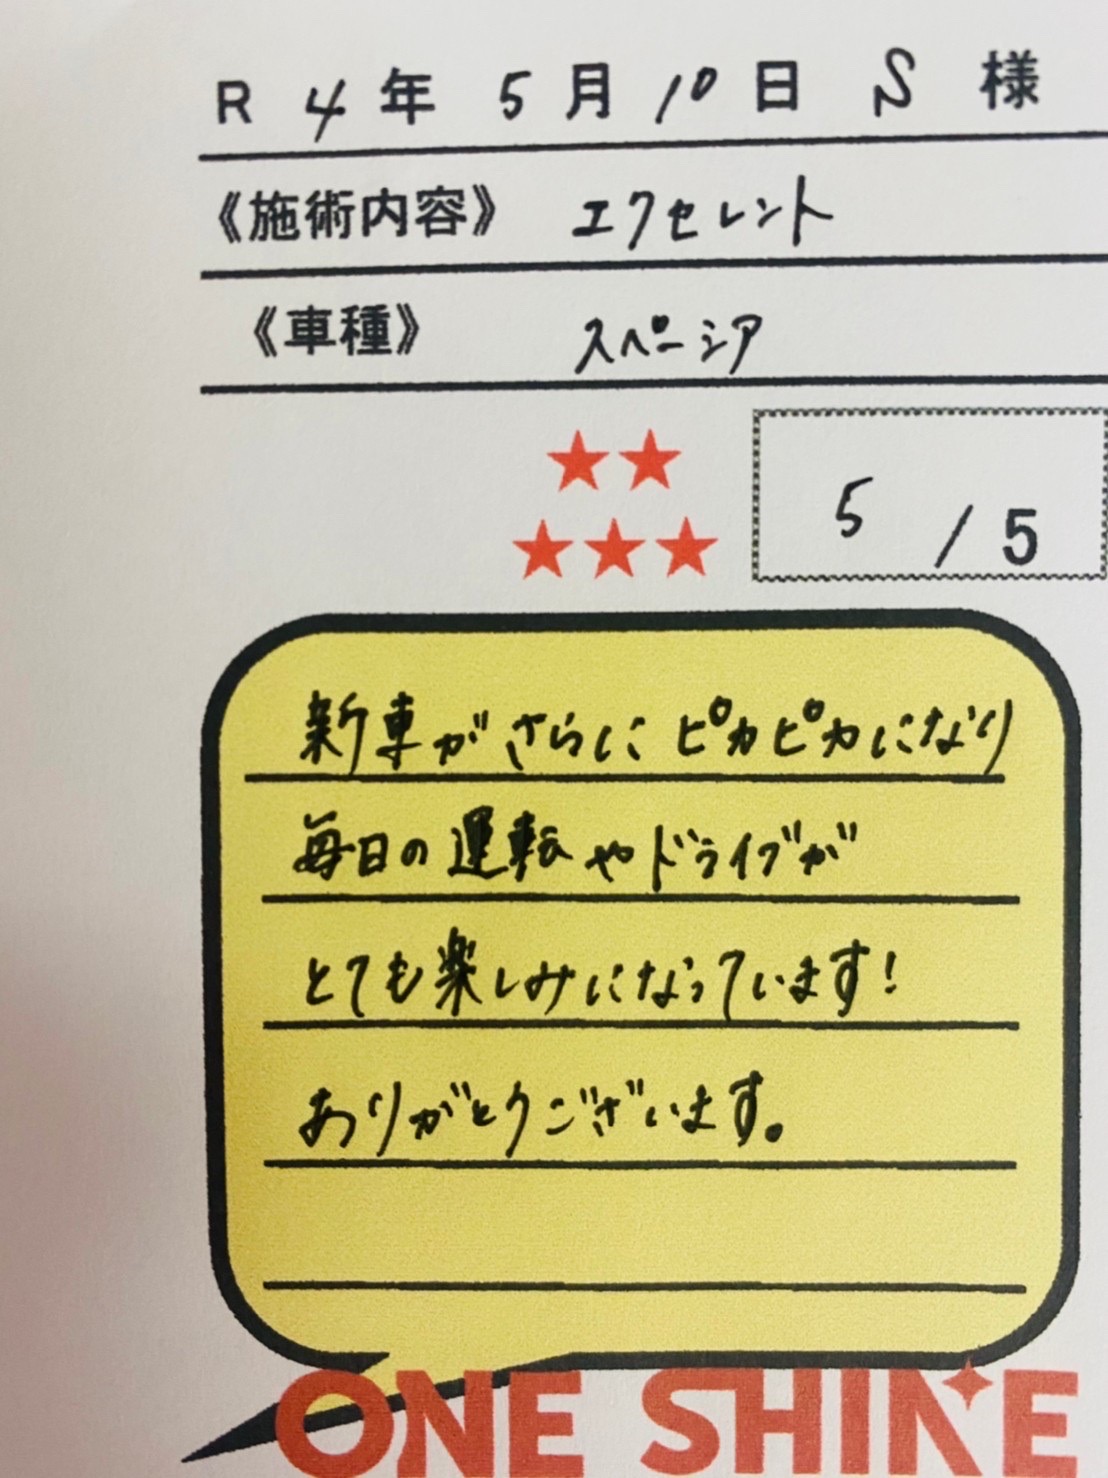 R 4 年 5 月 10 日 S 様
《施術内容》 エクセレント
《車種》 スペーシア
★★
★★★
5 / 5
新車がさらにピカピカになり
毎日の運転やドライブが
とても楽しみになっています!
ありがとうございます。
ONE SHINE